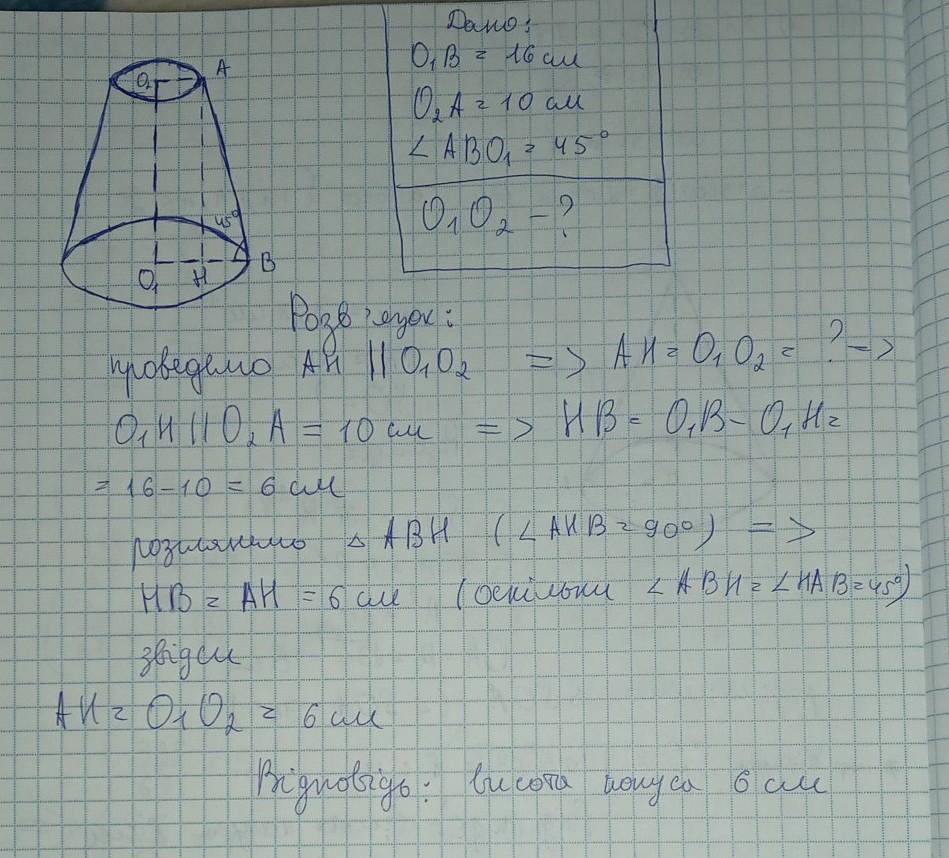 Дано:
O₁B = 16 см
O₂A = 10 см
∠ ABO₁ = 45°
O₁O₂ – ?
O₂ A
45°
O₁ H B
Розв'язок:
проведемо AH || O₁O₂ => AH = O₁O₂ = ? –>
O₁H || O₂A = 10 см => HB = O₁B – O₁H =
= 16 – 10 = 6 см
розглянемо △ ABH (∠ AHB = 90°) =>
HB = AH = 6 см (оскільки ∠ ABH = ∠ HAB = 45°)
звідси
AH = O₁O₂ = 6 см
Відповідь: висота конуса 6 см